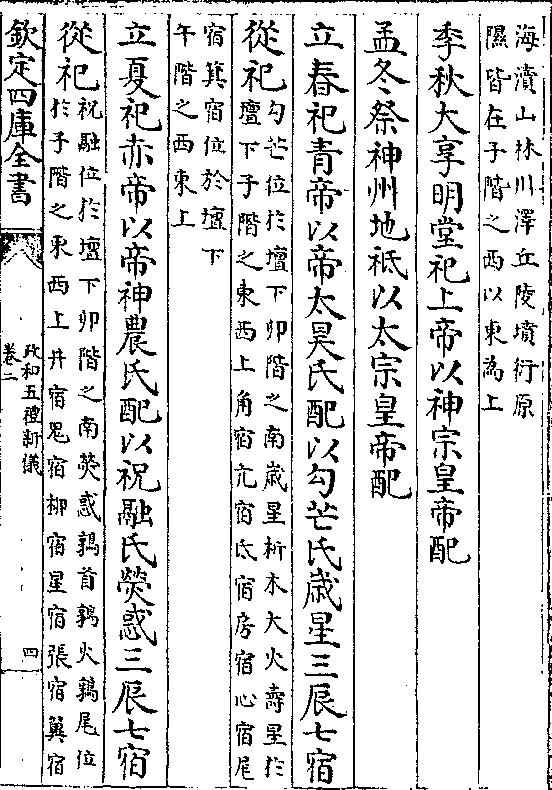 海瀆山林川澤丘陵墳衍原
隰皆在子階之西以東為上
季秋大享明堂祀上帝以神宗皇帝配
孟冬祭神州地祇以太宗皇帝配
立春祀青帝以帝太昊氏配以勾芒氏歳星三辰七宿
從祀勾芒位於壇下卯階之南歳星析木大火壽星於
壇下子階之東西上角宿亢宿氐宿房宿心宿尾
宿箕宿位於壇下
午階之西東上
立夏祀赤帝以帝神農氏配以祝融氏熒惑三辰七宿
從祀祝融位於壇下卯階之南熒惑鶉首鶉火鶉尾位
於子階之東西上井宿鬼宿柳宿星宿張宿翼宿
欽定四庫全書
政和五禮新儀
卷二
四